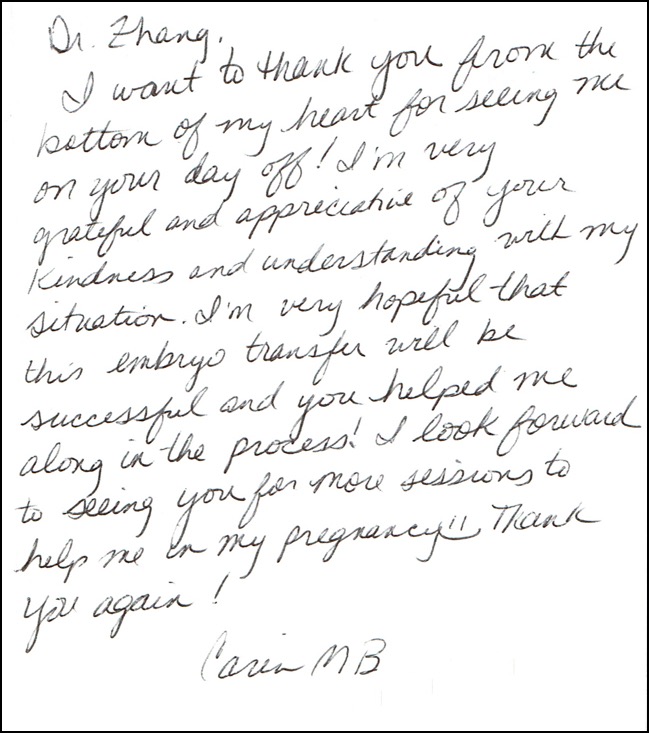 Dr. Zhang,
I want to thank you from the
bottom of my heart for seeing me
on your day off! I'm very
grateful and appreciative of your
kindness and understanding with my
situation. I'm very hopeful that
this embryo transfer will be
successful and you helped me
along in the process! I look forward
to seeing you for more sessions to
help me in my pregnancy!! Thank
you again!
Carin MB